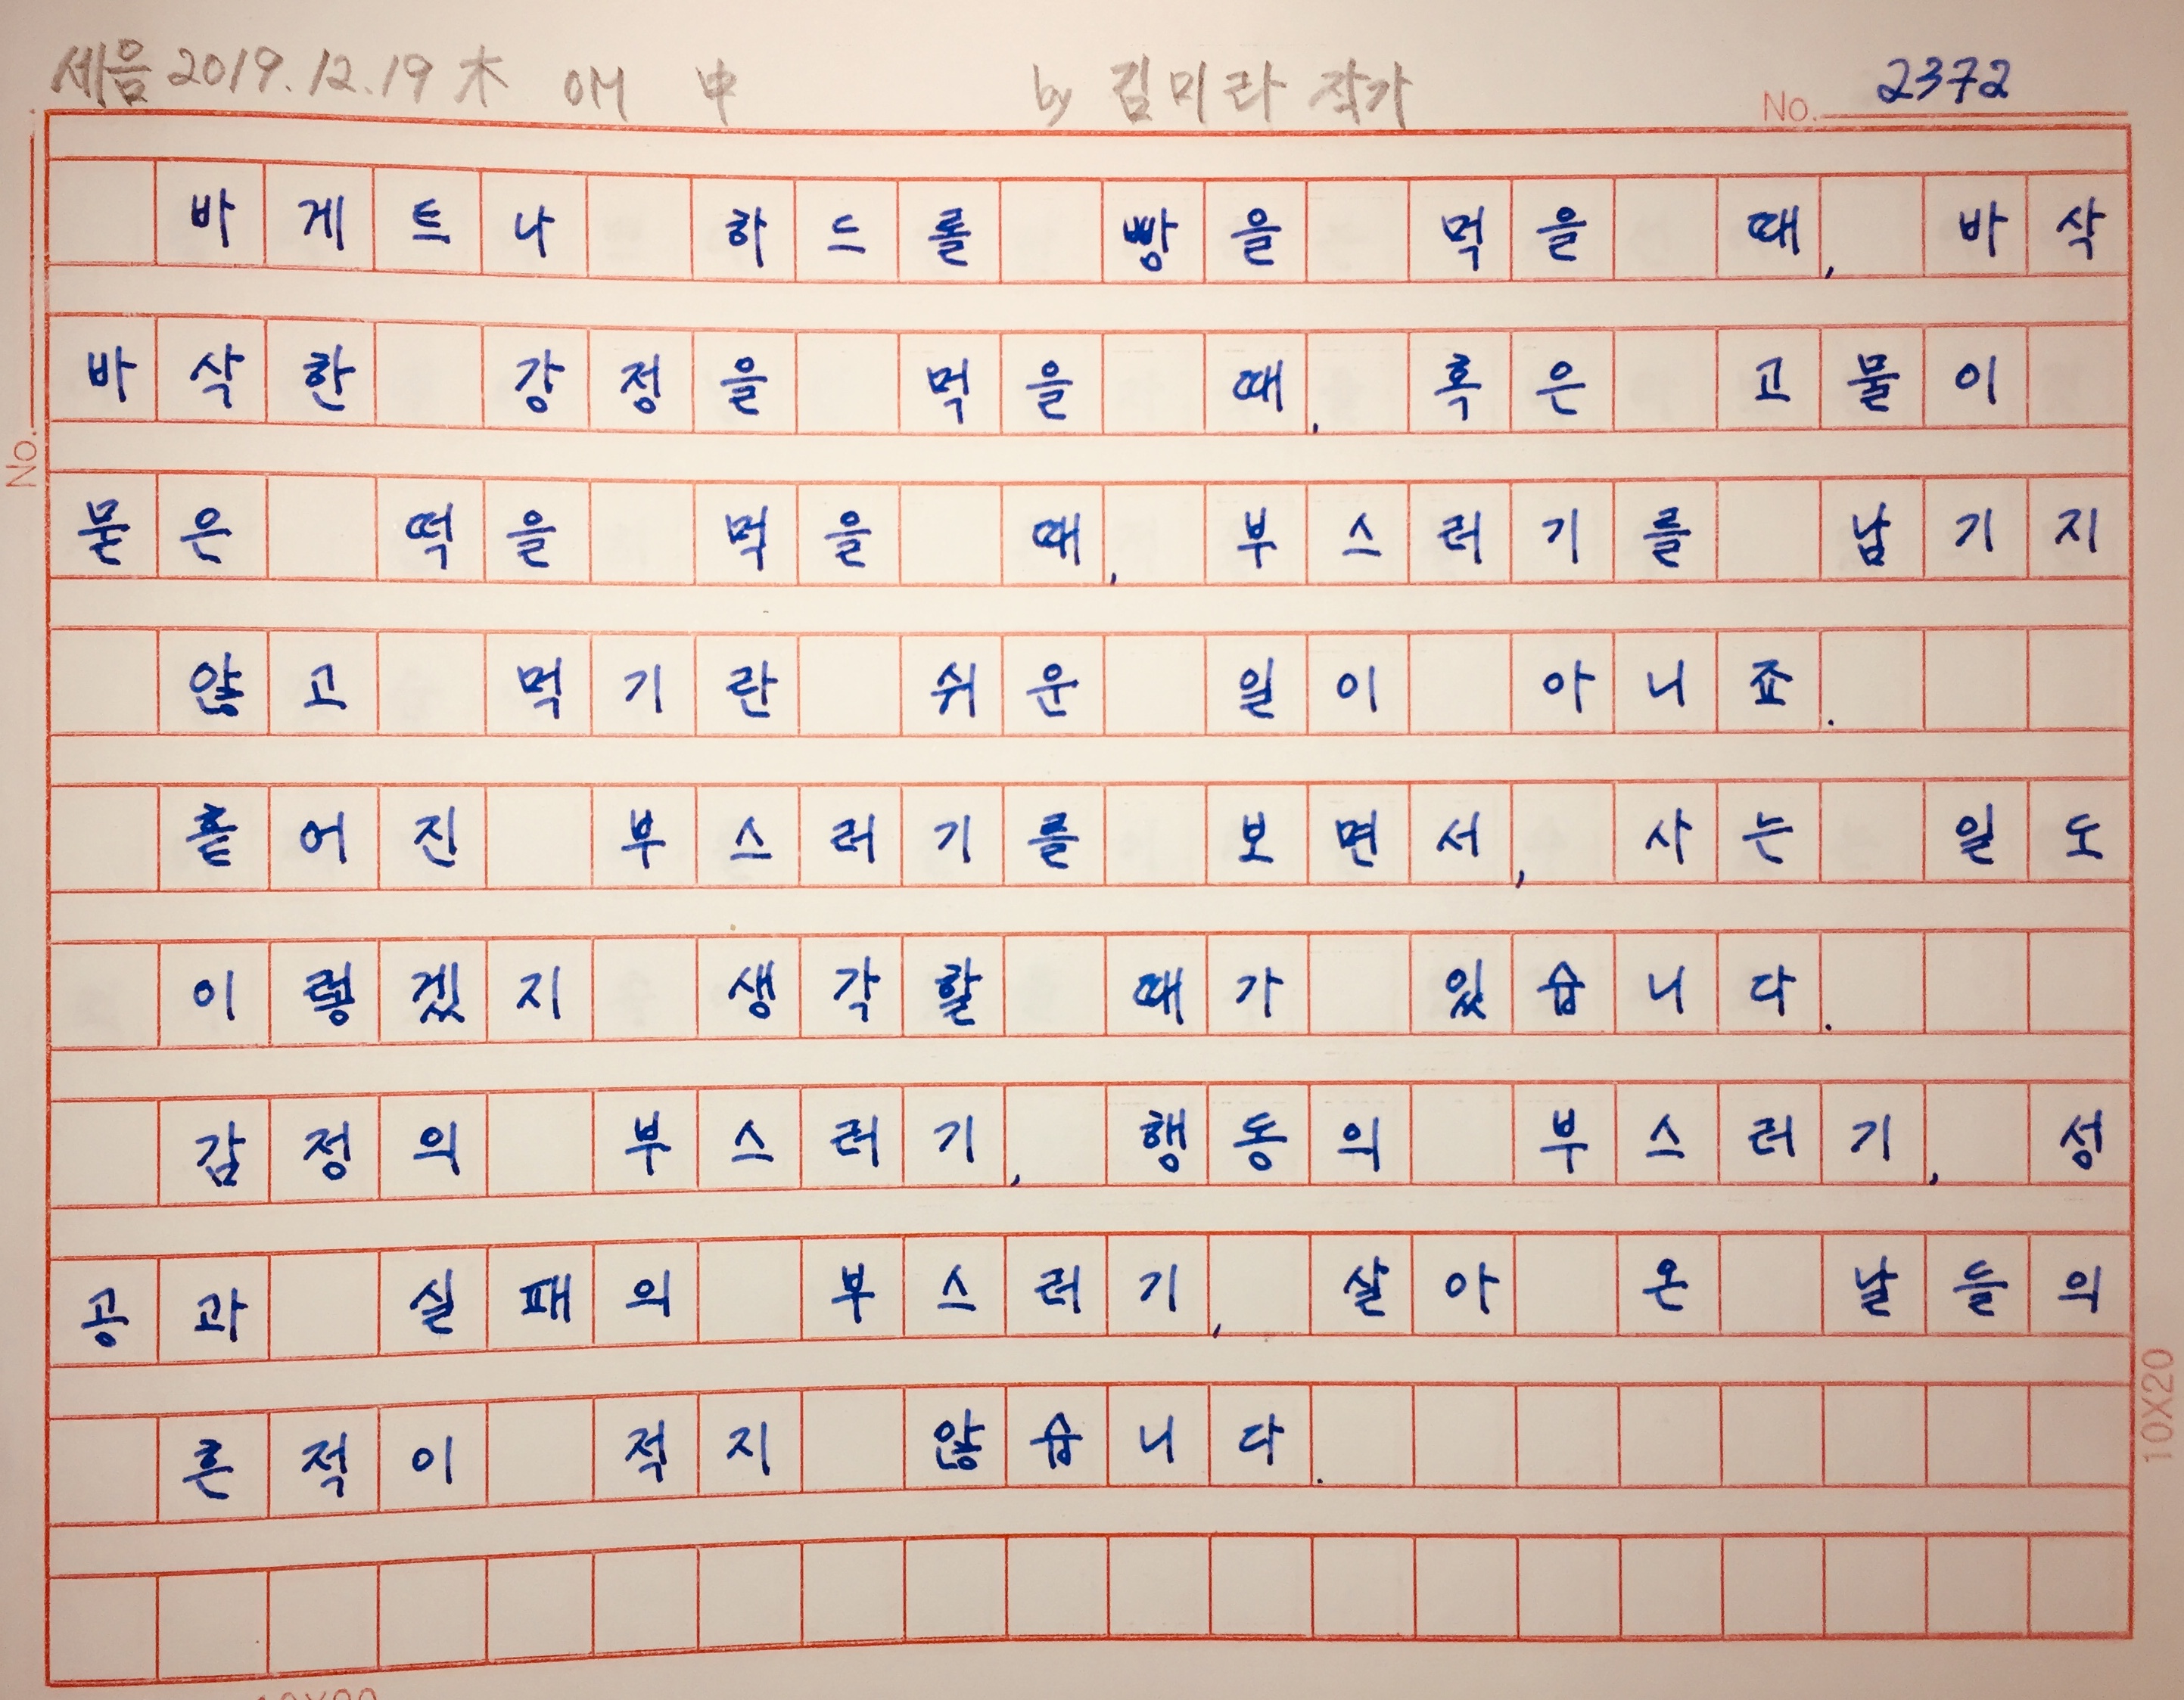 세음 2019.12.19 木 에 中 by 김미라 작가 No. 2372
바게트나 하드롤 빵을 먹을 때, 바삭
바삭한 강정을 먹을 때, 혹은 고물이
묻은 떡을 먹을 때, 부스러기를 남기지
않고 먹기란 쉬운 일이 아니죠.
흩어진 부스러기를 보면서, 사는 일도
이렇겠지 생각할 때가 있습니다.
감정의 부스러기, 행동의 부스러기, 성
공과 실패의 부스러기, 살아 온 날들의
흔적이 적지 않습니다.
No.
10X20